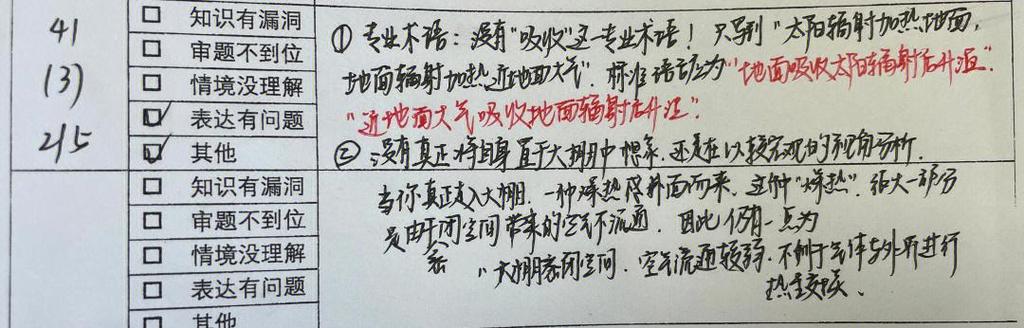 41
(3)
2/5
□ 知识有漏洞
□ 审题不到位
□ 情境没理解
☑ 表达有问题
☑ 其他
① 专业术语：没有"吸收"这一专业术语！只写到"太阳辐射加热地面，
地面辐射加热近地面大气"，标准语言应为"地面吸收太阳辐射后升温"
"近地面大气吸收地面辐射后升温"
② 没有真正将自身置于大棚中想象，还是在以较宏观的视角分析。
□ 知识有漏洞
□ 审题不到位
□ 情境没理解
□ 表达有问题
□ 其他
当你真正走入大棚，一种燥热席扑面而来，这种"燥热"，很大一部分
是由于密闭空间带来的空气不流通，因此仍有一点为
"大棚密闭空间，空气流通较弱，不利于气体与外界进行
热量交换。